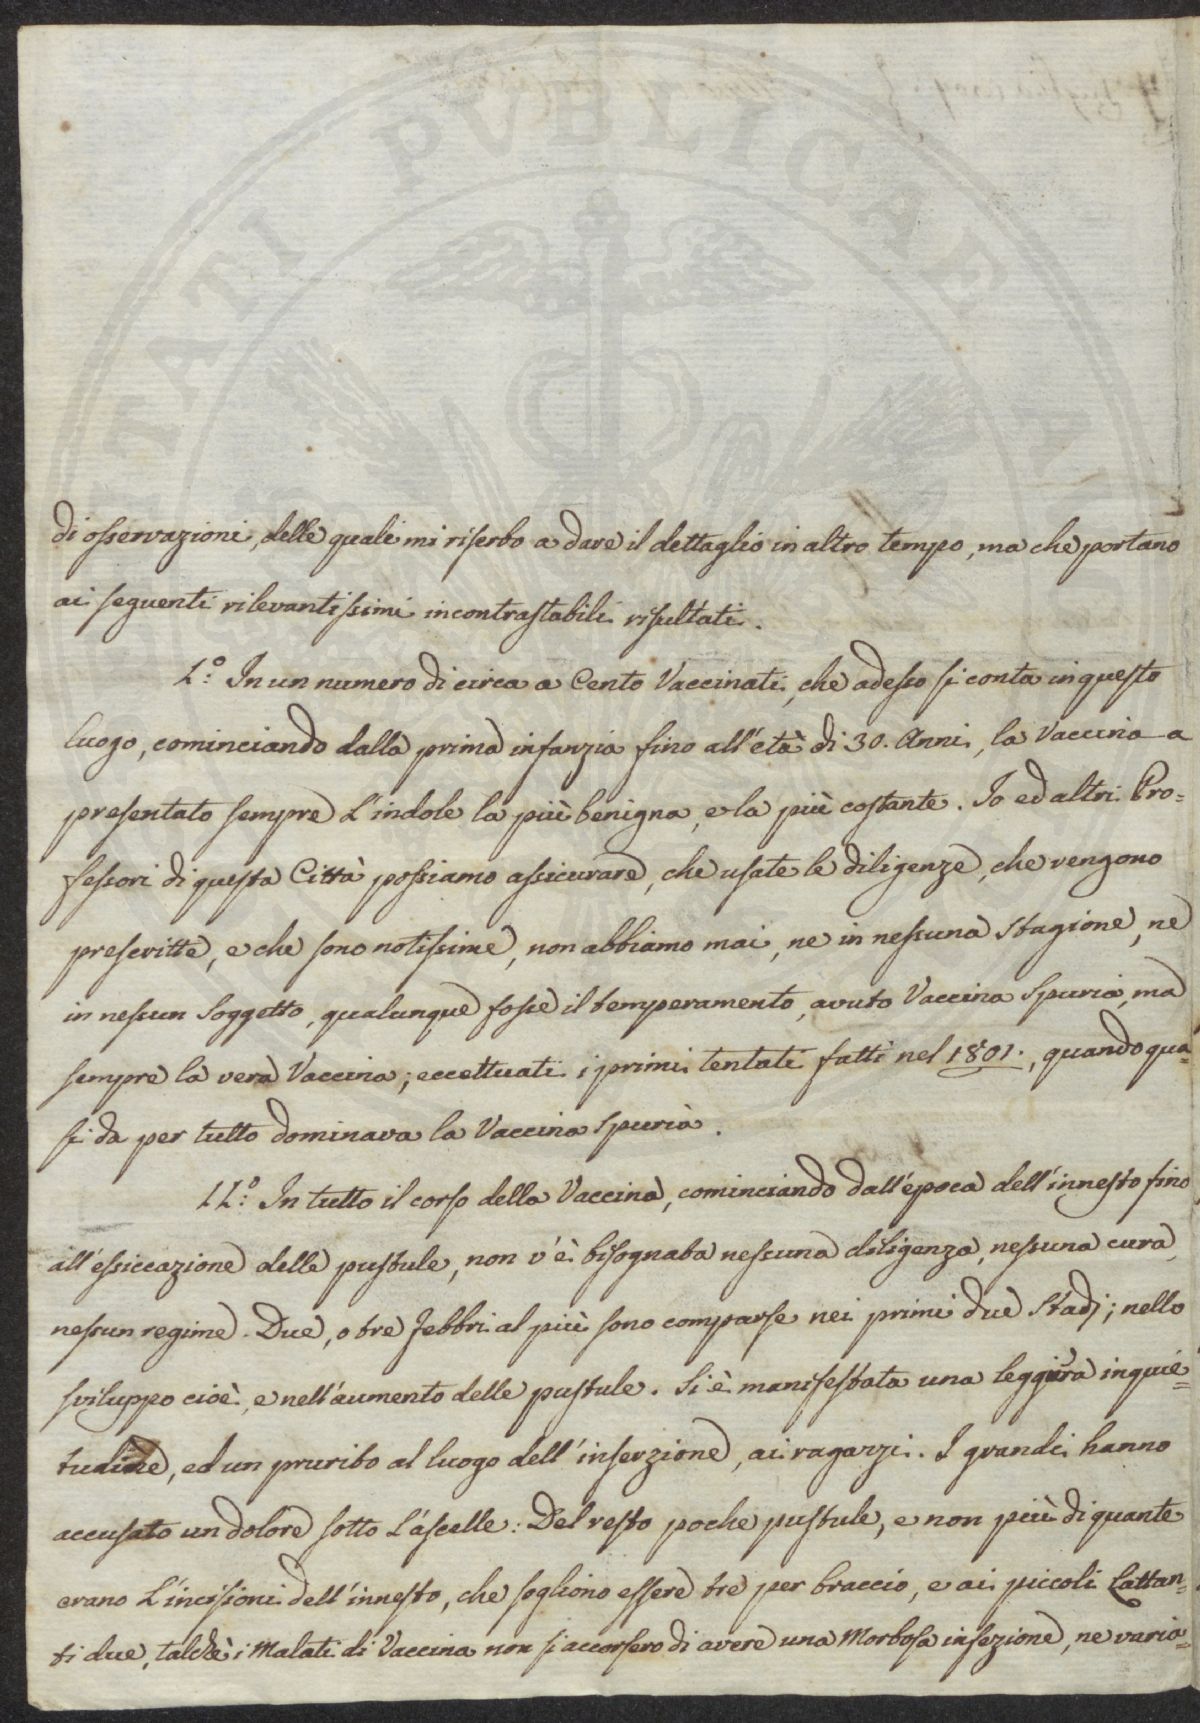 di osservazioni, delle quali mi riserbo a dare il dettaglio in altro tempo, ma che portano
ai seguenti rilevantissimi incontrastabili risultati.
1.º In un numero di circa a Cento Vaccinati, che adesso si conta in questo
luogo, cominciando dalla prima infanzia fino all'età di 30. Anni, la Vaccina a
presentato sempre l'indole la più benigna, e la più costante. Io ed altri Pro=
fessori di questa Città possiamo assicurare, che usate le diligenze, che vengono
prescritte, e che sono notissime, non abbiamo mai, ne in nessuna stagione, ne
in nessun soggetto, qualunque fosse il temperamento, avuto Vaccina Spuria, ma
sempre la vera Vaccina; eccettuati i primi tentati fatti nel 1801., quando qua=
si da per tutto dominava la Vaccina Spuria.
11.º In tutto il corso della Vaccina, cominciando dall'epoca dell'innesto fino
all'essiccazione delle pustule, non v'è bisognata nessuna diligenza, nessuna cura,
nessun regime. Due, o tre febbri al più sono comparse nei primi due Stadj; nello
sviluppo cioè, e nell'aumento delle pustule. Si è manifestata una leggiera inquie=
tudine, ed un prurito al luogo dell'inserzione, ai ragazzi. I grandi hanno
accusato un dolore sotto l'ascelle: Del resto poche pustule, e non più di quante
erano l'incisioni dell'innesto, che sogliono essere tre per braccio, e ai piccoli Lattan=
ti due, talchè i Malati di Vaccina non si accorsero di avere una Morbosa infezione, ne varia=